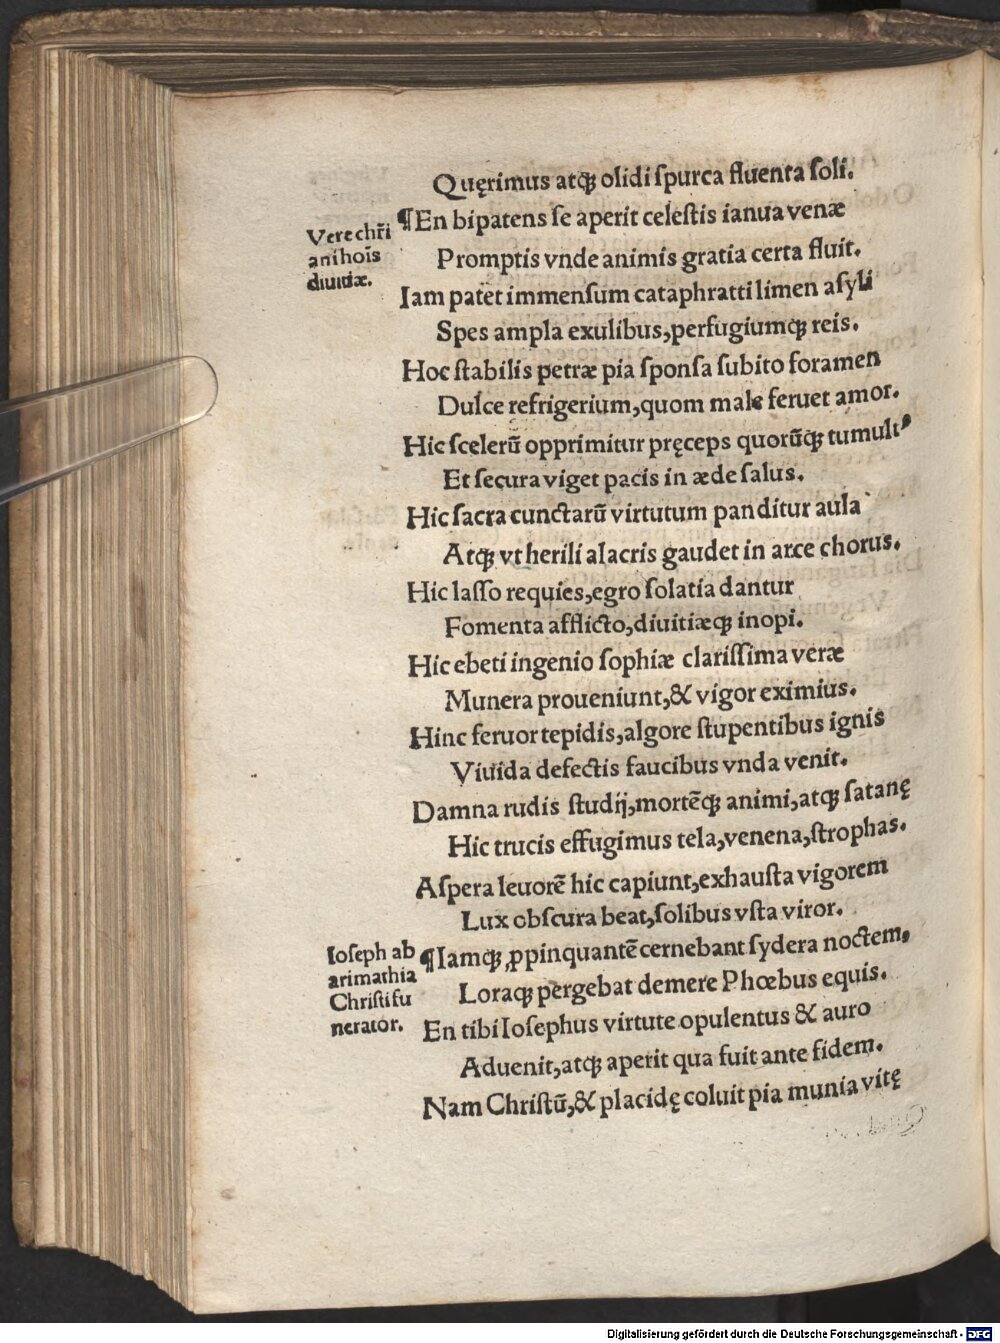 Quęrimus atqꝫ olidi ſpurca fluenta ſoli.
¶En bipatens ſe aperit celeſtis ianua venæ
Vere chr̃i
anihoĩs
diuitiæ.
Promptis vnde animis gratia certa fluit.
Iam patet immenſum cataphratti limen aſyli
Spes ampla exulibus,perfugiumqꝫ reis.
Hoc ſtabilis petræ pia ſponſa ſubito foramen
Dulce refrigerium,quom male feruet amor.
Hic ſcelerũ opprimitur pręceps quorũqꝫ tumultꝰ
Et ſecura viget pacis in æde ſalus.
Hic ſacra cunctarũ virtutum panditur aula
Atqꝫ vt herili alacris gaudet in arce chorus.
Hic laſſo requies,egro ſolatia dantur
Fomenta afflicto,diuitiæqꝫ inopi.
Hic ebeti ingenio ſophiæ clariſſima veræ
Munera proueniunt,& vigor eximius.
Hinc feruor tepidis,algore ſtupentibus ignis
Viuida defectis faucibus vnda venit.
Damna rudis ſtudij,mortẽqꝫ animi,atqꝫ ſatanę
Hic trucis effugimus tela,venena,ſtrophas.
Aſpera leuorẽ hic capiunt,exhauſta vigorem
Lux obſcura beat,ſolibus vſta viror.
¶Iamqꝫ ꝓpinquantẽ cernebant ſydera noctem,
Ioſeph ab
arimathia
Chriſti fu
nerator.
Loraqꝫ pergebat demere Phœbus equis.
En tibi Ioſephus virtute opulentus & auro
Aduenit,atqꝫ aperit qua fuit ante fidem.
Nam Chriſtũ,& placidę coluit pia munia vitę
Digitalisierung gefördert durch die Deutsche Forschungsgemeinschaft - DFG